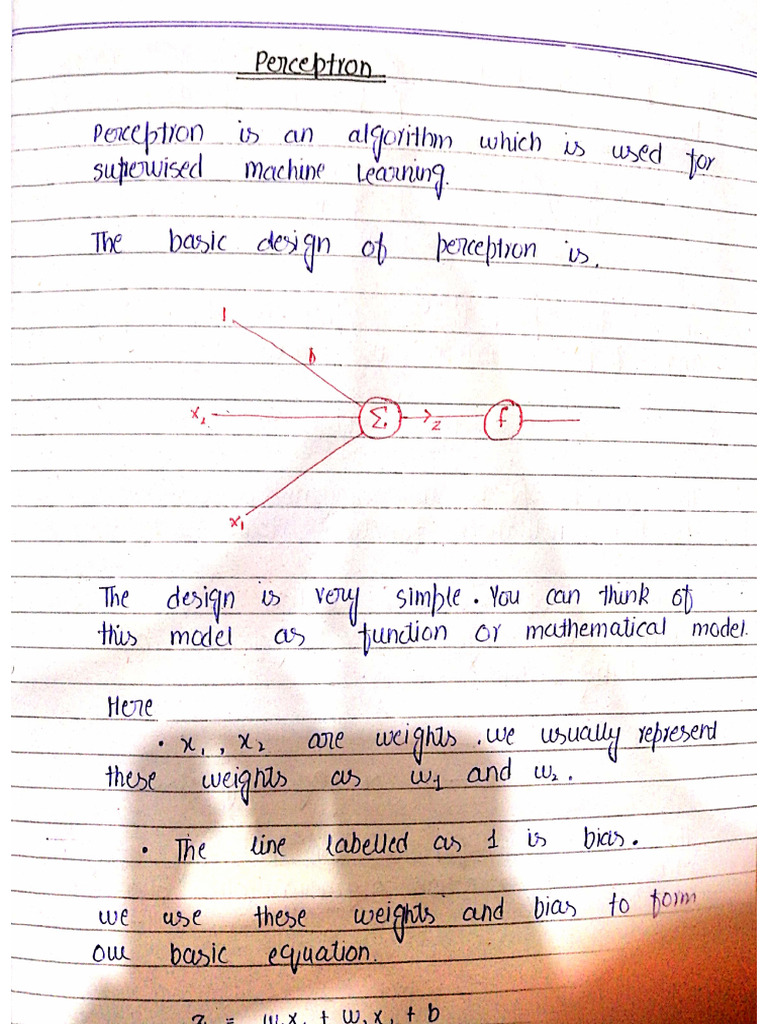 Perceptron
Perceptron is an algorithm which is used for
supervised machine learning.
The basic design of perceptron is.
1
b
x₂
Σ
z
f
x₁
The design is very simple. You can think of
this model as function or mathematical model.
Here
• x₁, x₂ are weights. we usually represend
these weights as w₁ and w₂.
• The line labelled as 1 is bias.
we use these weights and bias to form
our basic equation.
z = w x + w x + b